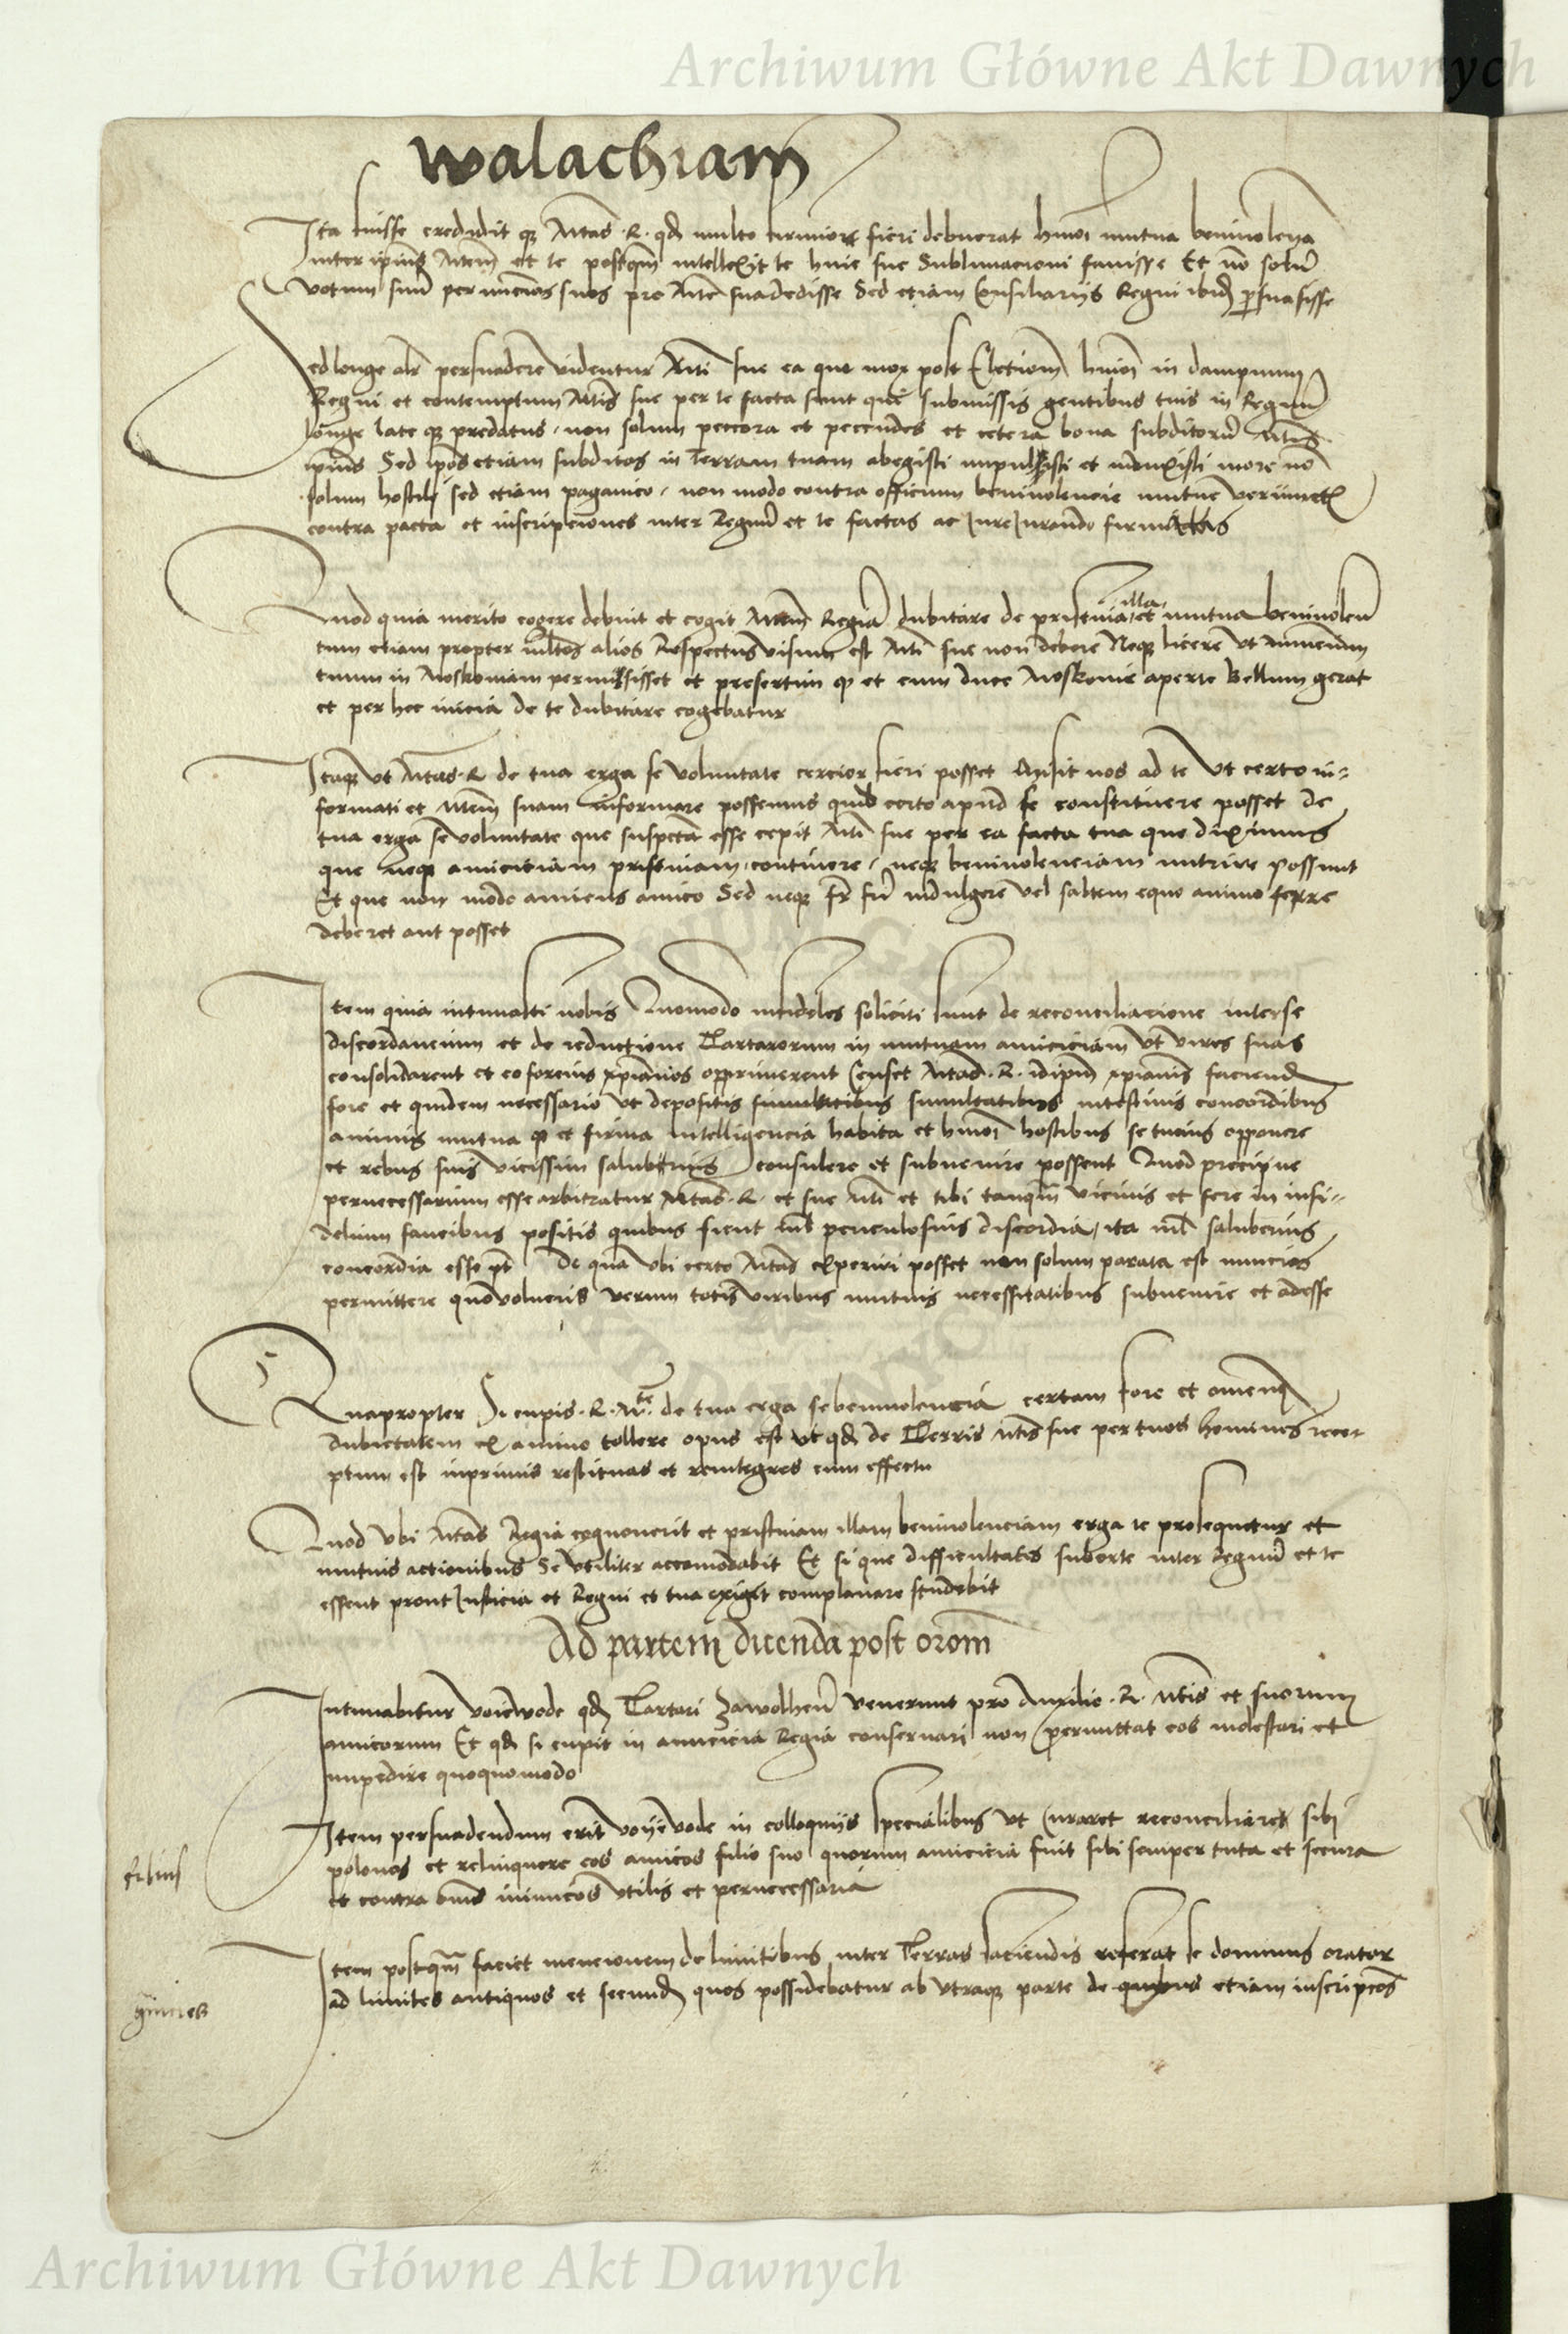 Archiwum Główne Akt Dawnych
walachiam
Ita fuisse credidit qz Mtas R. qd multo firmiore fieri debuerat hmoi mutua benivolencia
inter ipius Mtem et te postqm intellexit te huic sue Sublimacioni favisse Et no solu
votum suu per nuncios suos pro Mte sua dedisse Sed etiam Consiliariis Regni ibid psuasisse
Sed longe alr persuadere videntur Mti sue ea que mox post Electionem hmoi in dampnum
Regni et contemptum Mtis sue per te facta sunt que submissis gentibus tuis in Regnum
longe late qz predatus, non solum peccora et peccudes et cetera bona subditoru Mtis
ipius Sed ipos etiam subditos in Terram tuam abegisti impulisti et induxisti more no
solum hostili sed etiam paganico, non modo contra officium benivolencie mutue verumet
contra pacta et inscripciones inter Regnu et te factas ac Jure Jurando firmatas
Quod quia merito cogere debuit et cogit Mtem Regia dubitare de pristina illa et mutua benivolen
tum etiam propter multos alios Respectus visum est Mti sue non debere Neqz licere ut nuncium
tuum in Moskoviam permisisset et presertim qz et cum duce Moskovie aperte Bellum gerat
et per hec inicia de te dubitare cogebatur
Itaqz ut Mtas R. de tua erga se voluntate cercior fieri posset Misit nos ad te Ut certo in-
formati et Mtem suam informare possemus quid certo apud se constituere posset de
tua erga se voluntate que suspecta esse cepit Mti sue per ea facta tua que diximus
que neqz amiciciam pristinam continere, neqz benivolenciam nutrire possunt
Et que non modo amicus amico Sed neqz fr fri indulgere vel saltem equo animo ferre
deberet aut posset
Item quia intimasti nobis Quomodo infideles soliciti sunt de reconciliacione interse
discordancium et de reductione Tartarorum in mutuam amiciciam ut vires suas
consolidarent et eo forcius xpianos opprimerent Censet Mtas R. idipm xpianis faciend
fore et quidem necessario ut depositis simultatibus intestinis concordibus
animis mutua qz et firma intelligencia habita et hmoi hostibus se tucius opponere
et rebus suis vicissim salubrius consulere et subvenire possent Quod precipue
pernecessarium esse arbitratur Mtas R. et sue Mti et tibi tanqm vicinis et fere in infi-
delium faucibus positis quibus sicut nil periculosius discordia, ita nil salubrius
concordia esse pt De qua ubi certo Mtas experiri posset non solum parata est nuncios
permittere quo volueris verum totis viribus mutuis necessitatibus subvenire et adesse
Quapropter Si cupis R. Mte de tua erga se benivolencia certam fore et omnem
dubietatem ex animo tollere opus est ut qd de Terris Mtis sue per tuos homines rece-
ptum est inprimis restituas et reintegres cum effectu
Quod ubi Mtas Regia cognoverit et pristinam illam benivolenciam erga te prosequetur et
mutuis actionibus Se utiliter accomodabit Et si que difficultates suborte inter Regnu et te
essent prout Justicia et Regni et tua exigit complanare studebit
Ad partem dicenda post orom
Intimabitur voiewode qd Tartari Zawolhen venerunt pro Auxilio R. Mtis et suorum
amicorum Et qd si cupit in amicicia Regia conservari non permittat eos molestari et
impedire quoquomodo
Item persuadendum erit voyevode in colloquiis specialibus ut Curaret reconciliare sibi
polonos et relinquere eos amicos filio suo quorum amicicia fuit sibi semper tuta et secura
et contra oms inimicos utilis et pernecessaria
filius
Item postqm faciet mencionem de limitibus inter Terras faciendis referat se dominus orator
ad limites antiquos et secund quos possidebatur ab utraqz parte de quibus etiam inscripcos
Archiwum Główne Akt Dawnych